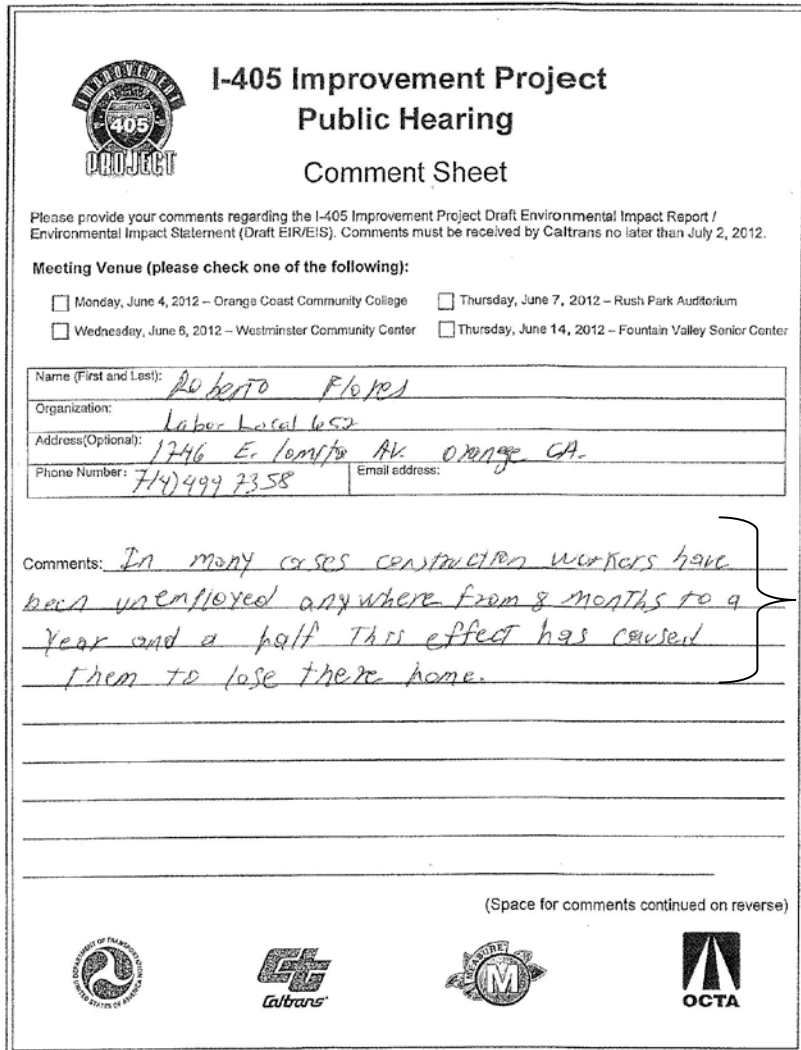 IMPROVEMENT
405
PROJECT
I-405 Improvement Project
Public Hearing
Comment Sheet
Please provide your comments regarding the I-405 Improvement Project Draft Environmental Impact Report /
Environmental Impact Statement (Draft EIR/EIS). Comments must be received by Caltrans no later than July 2, 2012.
Meeting Venue (please check one of the following):
Monday, June 4, 2012 – Orange Coast Community College
Thursday, June 7, 2012 – Rush Park Auditorium
Wednesday, June 6, 2012 – Westminster Community Center
Thursday, June 14, 2012 – Fountain Valley Senior Center
Name (First and Last): Roberto Flores
Organization: Labor Local 652
Address(Optional): 1746 E. Av. Orange CA.
Phone Number: 714) 499 7358
Email address:
Comments: In many cases construction workers have
been unemployed anywhere from 8 months to a
year and a half This effect has caused
them to lose there home.
(Space for comments continued on reverse)
DEPARTMENT OF TRANSPORTATION
UNITED STATES OF AMERICA
Caltrans
MEASURE
M
OCTA